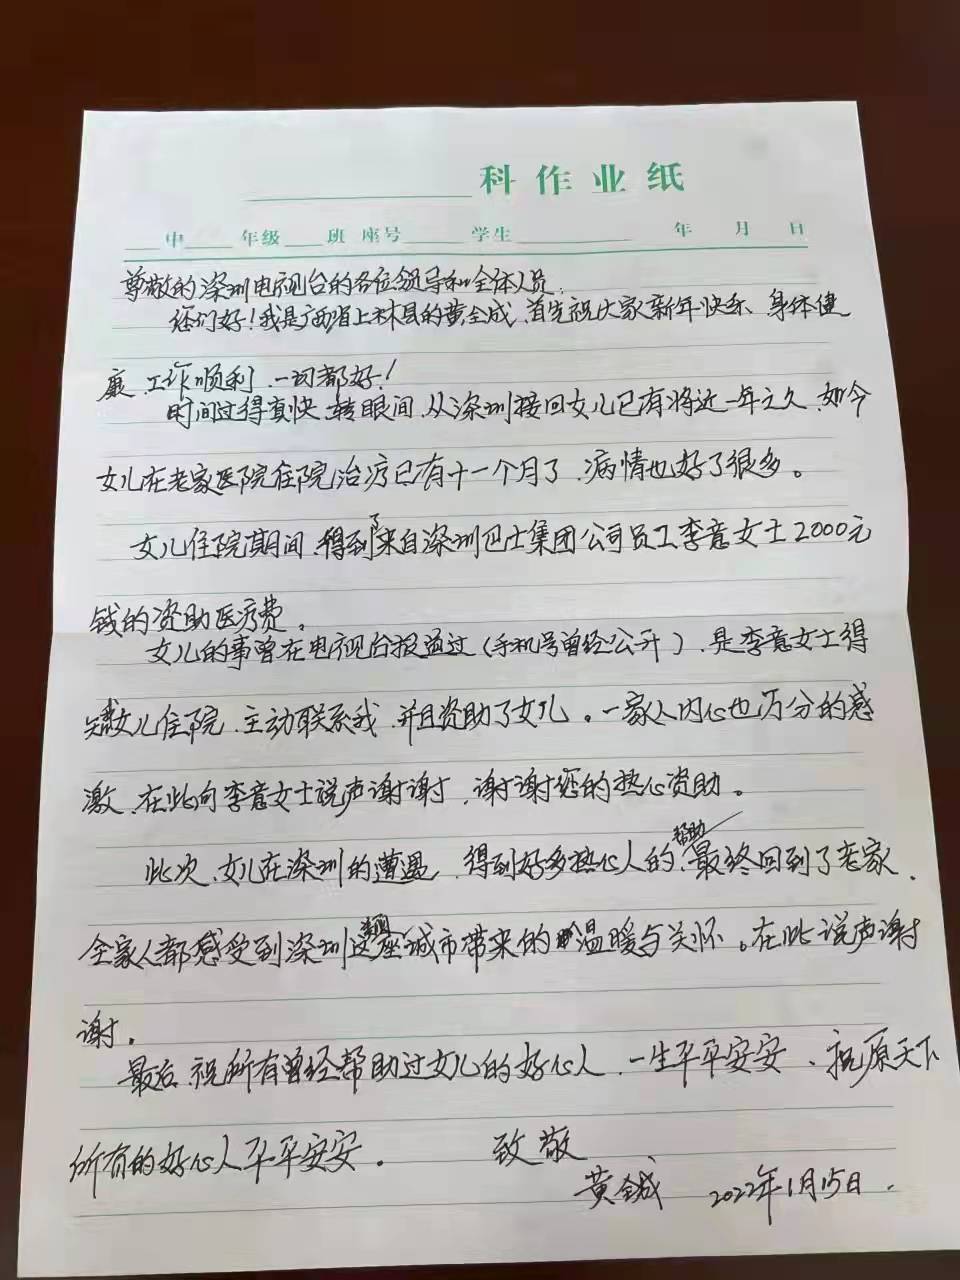 科作业纸
中 年级 班 座号 学生 年 月 日
尊敬的深圳电视台的各位领导和全体人员:
您们好!我是广西省上林县的黄全成、首先祝大家新年快乐、身体健
康、工作顺利、一切都好!
时间过得真快、转眼间、从深圳接回女儿已有将近一年之久、如今
女儿在老家医院住院治疗已有十一个月了、病情也好了很多。
女儿住院期间、得到了来自深圳巴士集团公司员工李意女士2000元
钱的资助医疗费。
女儿的事曾在电视台报道过(手机号曾经公开)、是李意女士得
知女儿住院、主动联系我、并且资助了女儿。一家人内心也万分的感
激、在此向李意女士说声谢谢、谢谢您的热心资助。
此次、女儿在深圳的遭遇、得到好多热心人的帮助、最终回到了老家、
全家人都感受到深圳这座城市带来的温暖与关怀。在此说声谢
谢。
最后、祝所有曾经帮助过女儿的好心人、一生平平安安、祝原天下
所有的好心人平平安安。 致敬
黄全成 2022年1月15日.